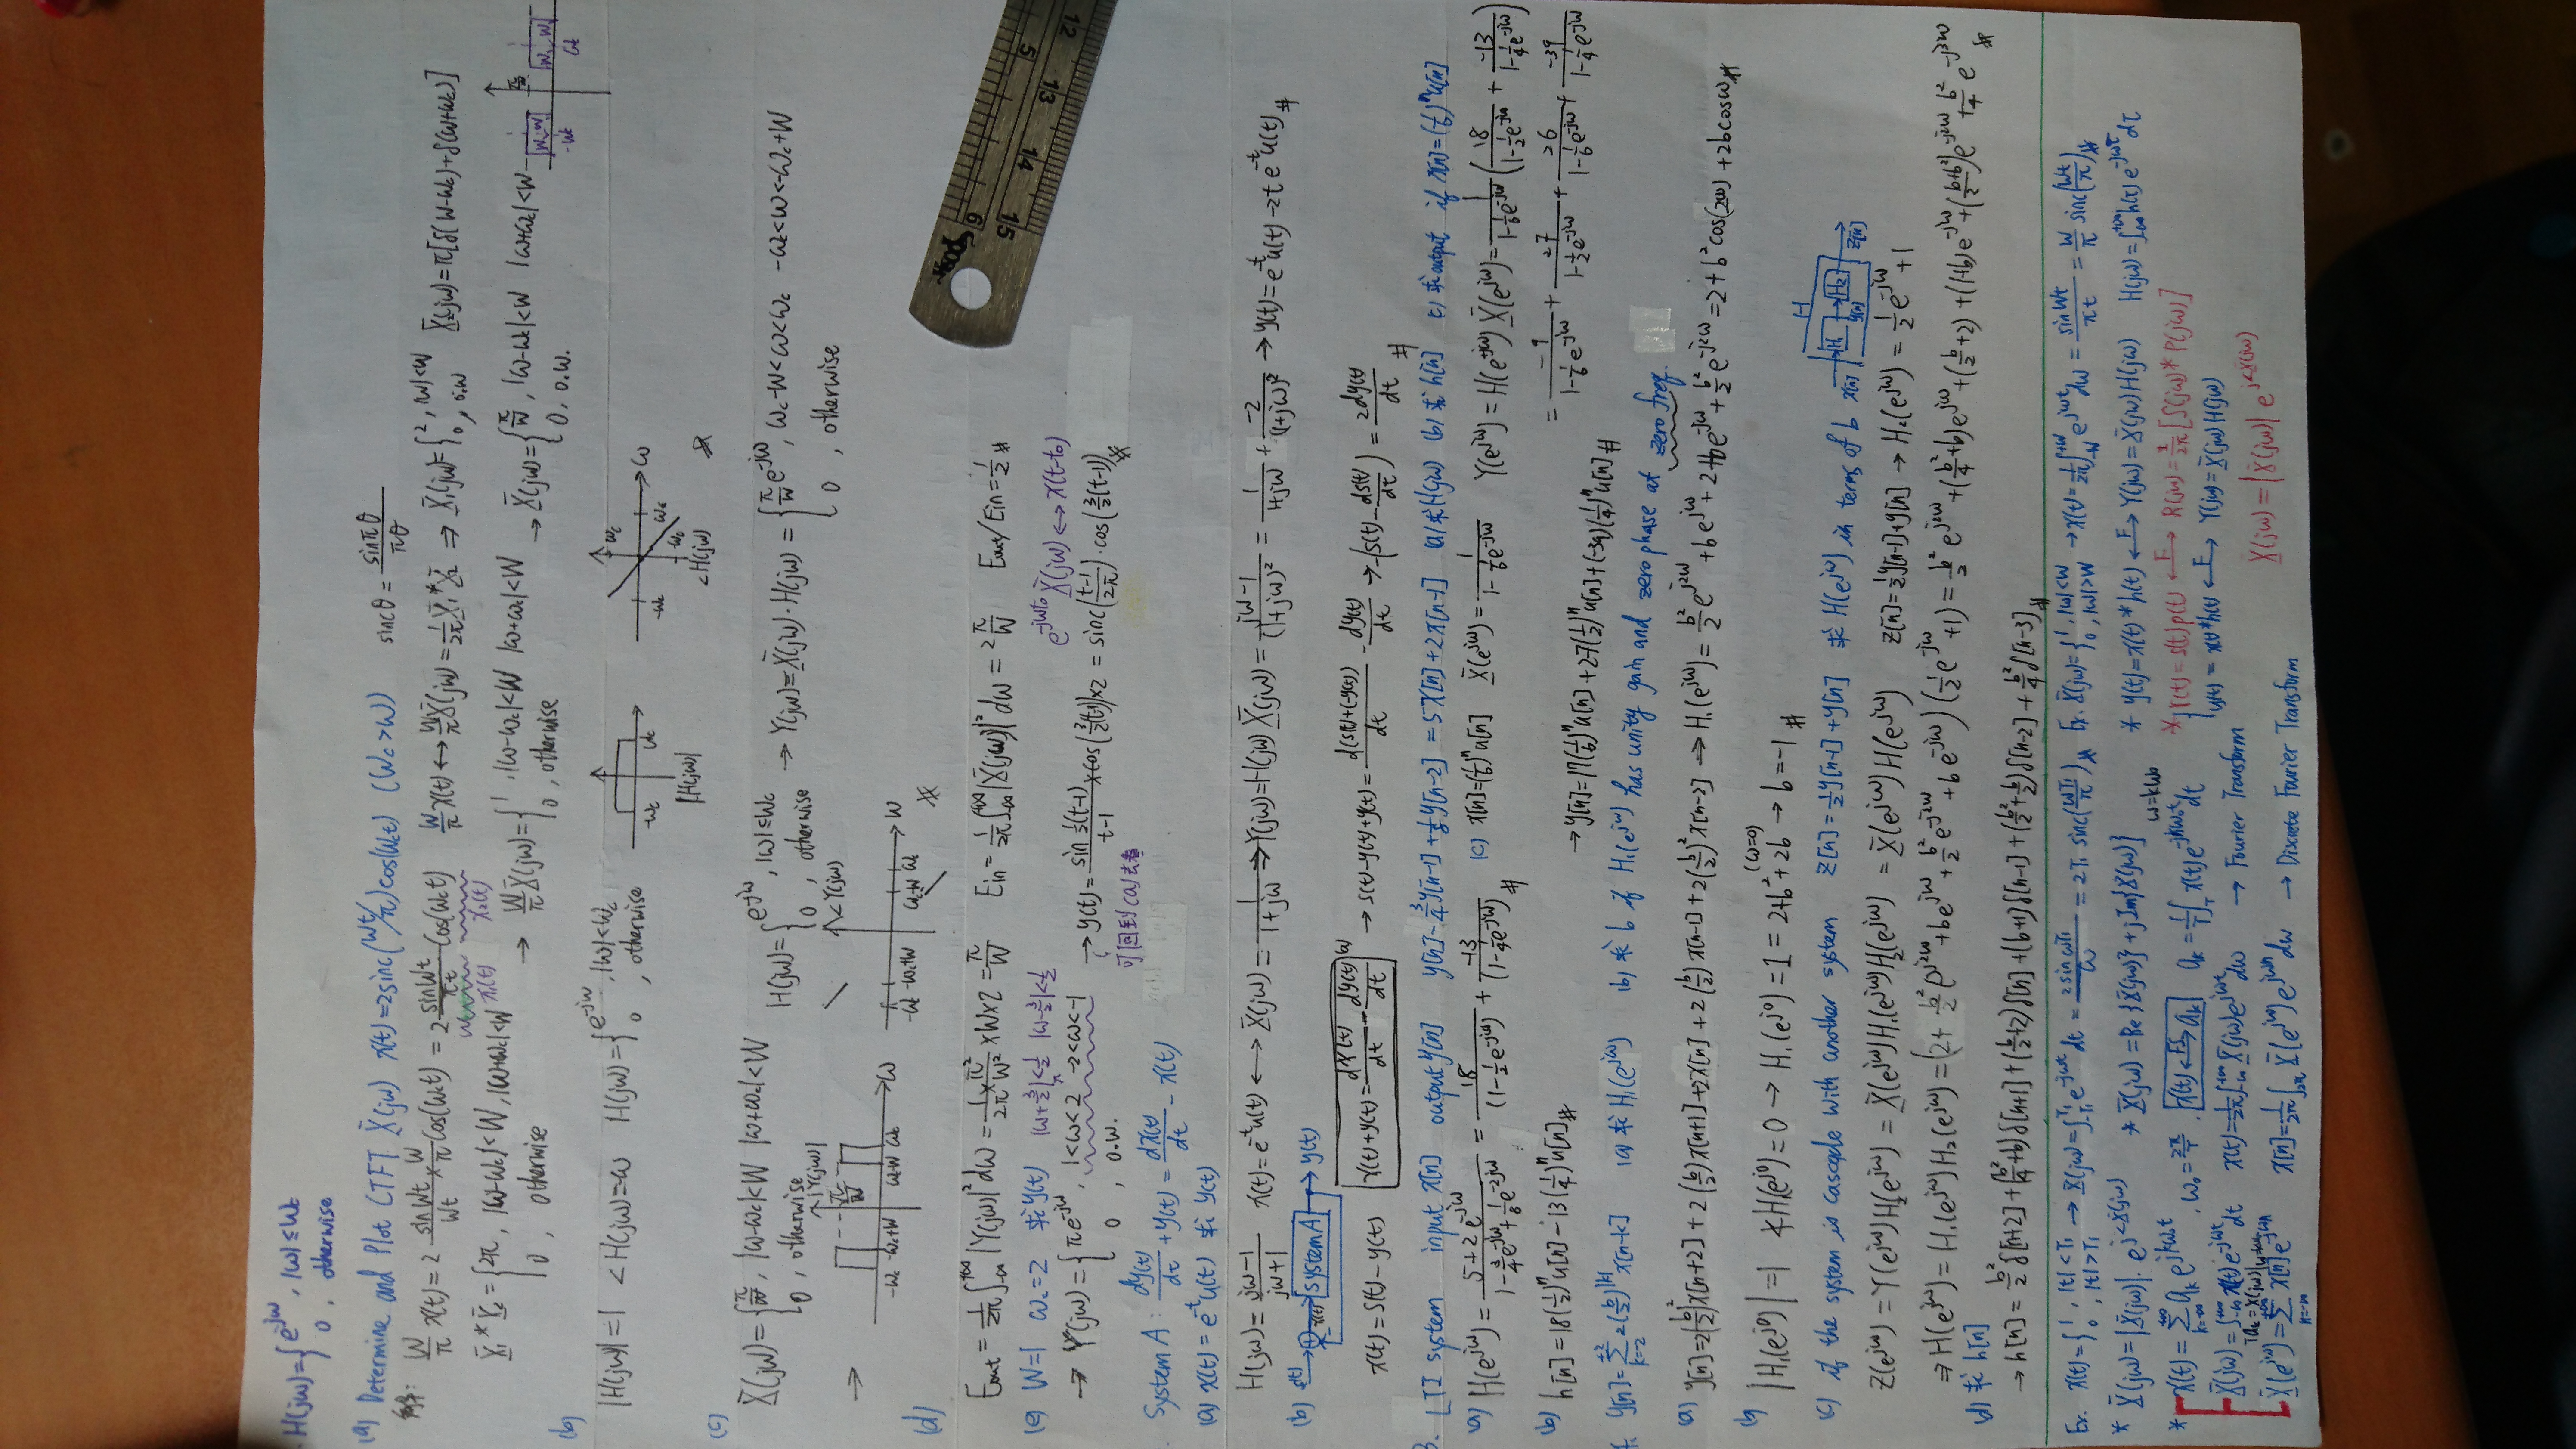 H(jω)={e^-jω, |ω|≤ωc
0, otherwise
(a) Determine and Plot CTFT X(jω) x(t)=2sinc(Wt/π)cos(ωct) (ωc>W) sincθ = sinπθ/πθ
解: W/π x(t) = 2 sinWt/Wt × W/π cos(ωct) = 2 sinWt/πt cos(ωct) W/π x(t) ↔ W/π X(jω) = 1/2π X1*X2 ⇒ X1(jω)={2, |ω|<W
0, o.w X2(jω)=π[δ(ω-ωc)+δ(ω+ωc)]
x1(t) x2(t)
X1*X2={2π, |ω-ωc|<W, |ω+ωc|<W
0, otherwise
→ W/π X(jω)={1, |ω-ωc|<W |ω+ωc|<W
0, otherwise
→ X(jω)={π/W, |ω-ωc|<W |ω+ωc|<W
0, o.w.
(b) |H(jω)|=1 <H(jω)=-ω H(jω)={e^-jω, |ω|<ωc
0, otherwise
-ωc ωc |H(jω)|
-ωc ωc ω <H(jω)
(c) X(jω)={π/W, |ω-ωc|<W |ω+ωc|<W
0, otherwise
H(jω)={e^-jω, |ω|≤ωc
0, otherwise
→ Y(jω)=X(jω)·H(jω)={π/W e^-jω, ωc-W<ω<ωc -ωc<ω<-ωc+W
0, otherwise
→ |Y(jω)| π/W -ωc -ωc+W ωc-W ωc ω
<Y(jω) -ωc -ωc+W ωc-W ωc ω
(d) Eout = 1/2π ∫-∞^+∞ |Y(jω)|² dω = 1/2π × π²/W² × W×2 = π/W Ein = 1/2π ∫-∞^+∞ |X(jω)|² dω = 2π/W Eout/Ein = 1/2 #
(e) W=1 ωc=2 求y(t) |ω+3/2|<1/2 |ω-3/2|<1/2 e^-jωt0 X(jω) ↔ x(t-t0)
→ Y(jω)={πe^-jω, 1<ω<2 -2<ω<-1
0, o.w.
→ y(t) = sin 1/2(t-1)/t-1 × cos(3/2(t-1))×2 = sinc(t-1/2π)·cos(3/2(t-1)) #
可回到(a)去看
System A: dy(t)/dt + y(t) = dx(t)/dt - x(t)
(a) x(t)=e^-t u(t) 求 y(t)
H(jω)= jω-1/jω+1 x(t)=e^-t u(t) ↔ X(jω)= 1/1+jω → Y(jω)=H(jω)X(jω)= jω-1/(1+jω)² = 1/1+jω + -2/(1+jω)² → y(t)=e^-t u(t)-2te^-t u(t) #
(b) s(t) → + x(t) → System A → y(t)
x(t)=s(t)-y(t) x(t)+y(t)= dx(t)/dt - dy(t)/dt → s(t)-y(t)+y(t)= d(s(t)+(-y(t)))/dt - dy(t)/dt → -(s(t)- ds(t)/dt)= 2dy(t)/dt #
3. LTI system input x[n] output y[n] y[n]-3/4y[n-1]+1/8y[n-2]=5x[n]+2x[n-1] (a)求H(jω) (b)求h[n] (c)求output if x[n]=(1/6)^n u[n]
(a) H(e^jω)= 5+2e^-jω/1-3/4e^-jω+1/8e^-2jω = 18/(1-1/2e^-jω) + -13/(1-1/4e^-jω) #
(b) h[n]=18(1/2)^n u[n]-13(1/4)^n u[n] #
(c) x[n]=(1/6)^n u[n] X(e^jω)= 1/1-1/6e^-jω Y(e^jω)=H(e^jω)X(e^jω)= 1/1-1/6e^-jω (18/1-1/2e^-jω + -13/1-1/4e^-jω)
= -9/1-1/6e^-jω + 27/1-1/2e^-jω + 26/1-1/6e^-jω + -39/1-1/4e^-jω
→ y[n]=17(1/6)^n u[n]+27(1/2)^n u[n]+(-39)(1/4)^n u[n] #
4. y[n]=Σk=-2^+2 2(b/2)^|k| x[n-k] (a)求H1(e^jω) (b)求 b if H1(e^jω) has unity gain and zero phase at zero freq.
(a) y[n]=2(b/2)²x[n+2]+2(b/2)x[n+1]+2x[n]+2(b/2)x[n-1]+2(b/2)²x[n-2] → H1(e^jω)= b²/2 e^j2ω + be^jω + 2 + be^-jω + b²/2 e^-j2ω = 2+b²cos(2ω)+2bcosω #
(b) |H1(e^j0)|=1 ∡H1(e^j0)=0 → H1(e^j0)=1=2+b²+2b (ω=0) → b=-1 #
(c) if the system is cascade with another system z[n]=1/2y[n-1]+y[n] 求 H(e^jω) in terms of b x[n] H1 y[n] H2 z[n] H
Z(e^jω)=Y(e^jω)H2(e^jω)=X(e^jω)H1(e^jω)H2(e^jω)=X(e^jω)H(e^jω) z[n]=1/2y[n-1]+y[n] → H2(e^jω)=1/2e^-jω+1
⇒ H(e^jω)=H1(e^jω)H2(e^jω)=(2+b²/2e^j2ω+be^jω+b²/2e^-j2ω+be^-jω)(1/2e^-jω+1)= b²/2 e^j2ω+(b²/4+b)e^jω+(b/2+2)+(1+b)e^-jω+(b+b²/2)e^-j2ω+b²/4e^-j3ω #
(d) 求 h[n]
→ h[n]= b²/2 δ[n+2]+(b²/4+b)δ[n+1]+(b/2+2)δ[n]+(b+1)δ[n-1]+(b²/2+b/2)δ[n-2]+b²/4δ[n-3] #
Ex. x(t)={1, |t|<T1
0, |t|>T1 → X(jω)=∫-T1^T1 e^-jωt dt = 2sinωT1/ω = 2T1 sinc(ωT1/π) # Ex. X(jω)={1, |ω|<W
0, |ω|>W → x(t)=1/2π∫-W^+W e^jωt dω = sinWt/πt = W/π sinc(Wt/π) #
* X(jω)=|X(jω)|·e^j<X(jω) * X(jω)=Re{X(jω)}+jIm{X(jω)} * y(t)=x(t)*h(t) ↔F Y(jω)=X(jω)H(jω) H(jω)=∫-∞^+∞ h(t)e^-jωt dt
* x(t)=Σk=-∞^+∞ ak e^jkωt, ω0=2π/T, x(t) ↔FS ak ak=1/T∫T x(t)e^-jkω0t dt ω=kω0 * r(t)=s(t)p(t) ↔F R(jω)=1/2π[S(jω)*P(jω)]
X(jω)=∫-∞^+∞ x(t)e^-jωt dt x(t)=1/2π∫-∞^+∞ X(jω)e^jωt dω → Fourier Transform y(t)=x(t)*h(t) ↔F Y(jω)=X(jω)H(jω)
X(e^jω)=Σn=-∞^+∞ x[n]e^-jωn x[n]=1/2π∫2π X(e^jω)e^jωn dω → Discrete Fourier Transform X(jω)=|X(jω)|e^j<X(jω)
5 6
12 13 14 15